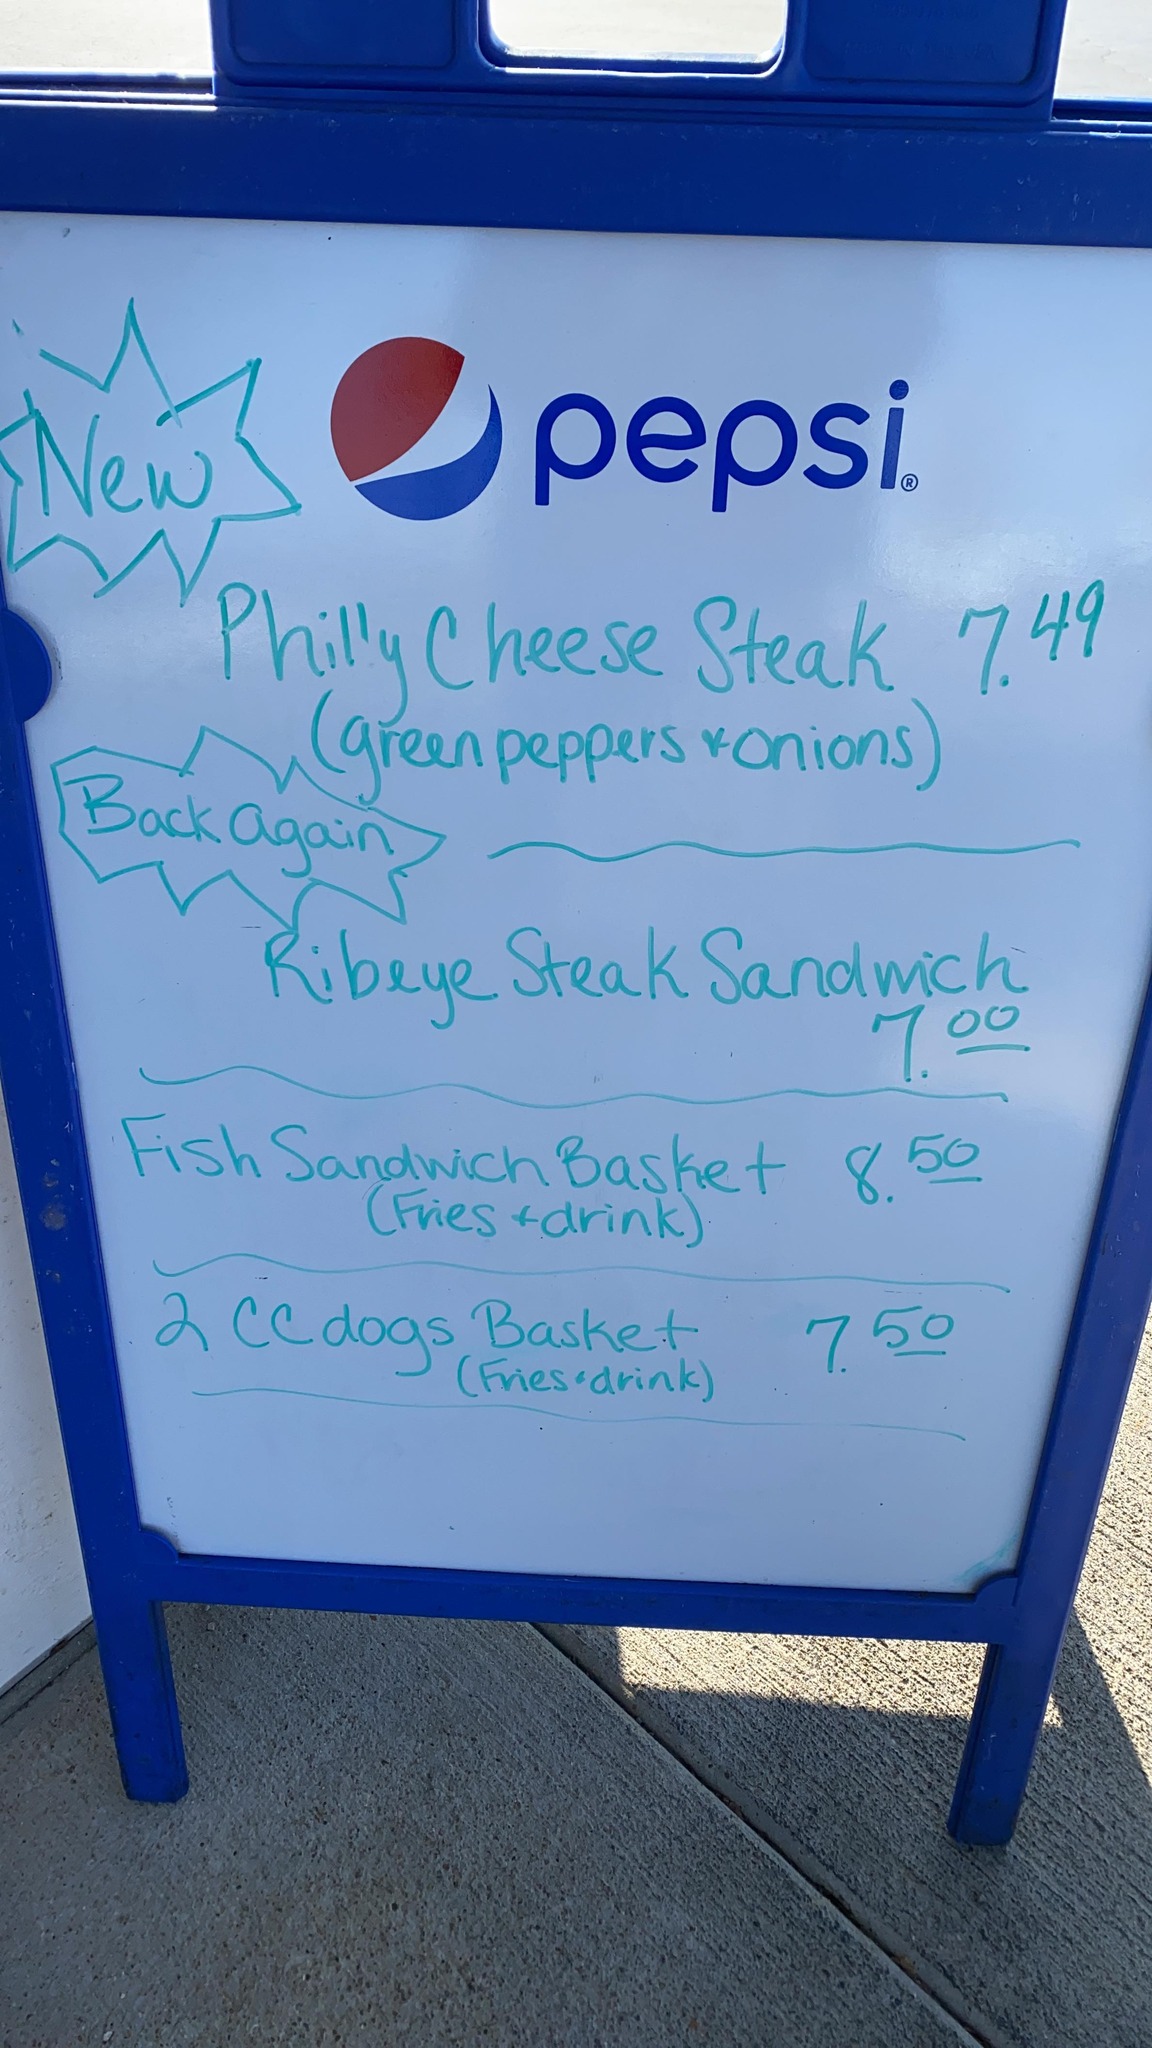 New
pepsi®
Philly Cheese Steak 7.49
(green peppers + onions)
Back again
Ribeye Steak Sandwich
7.00
Fish Sandwich Basket 8.50
(Fries + drink)
2 CC dogs Basket 7.50
(Fries + drink)